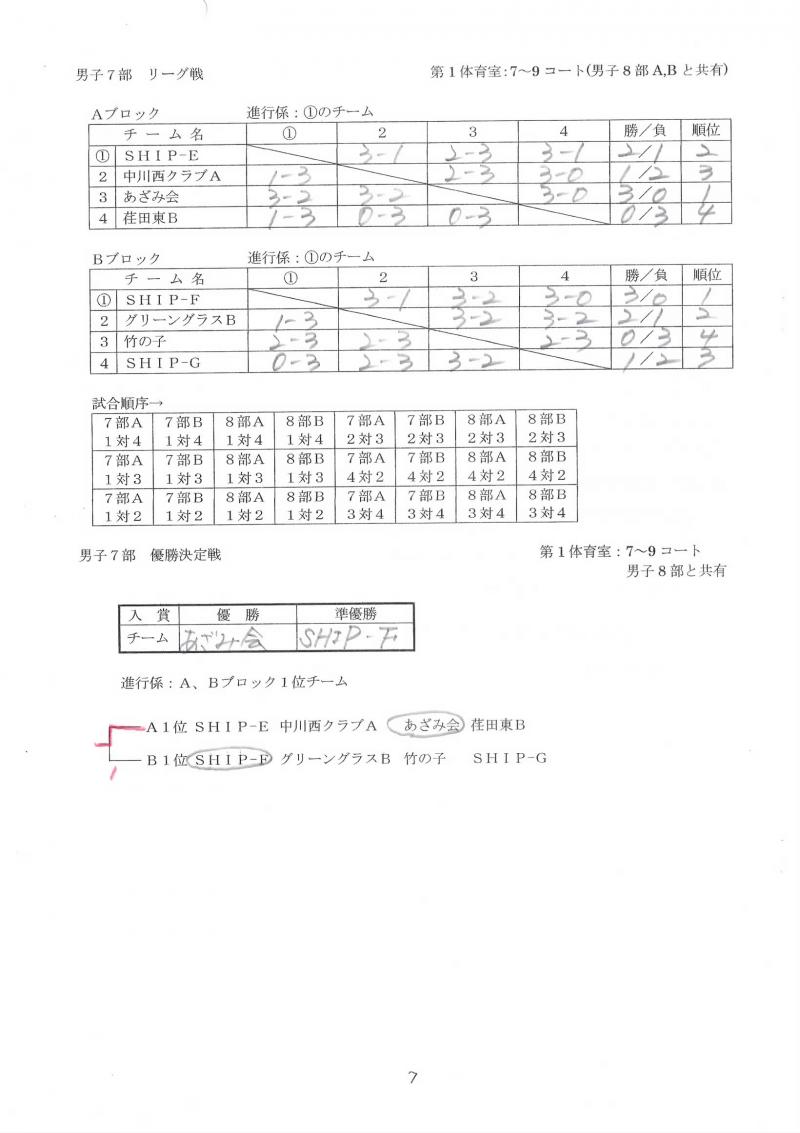 男子７部　リーグ戦　第１体育室：7～9 コート(男子８部 A,B と共有)
Ａブロック　進行係：①のチーム
チ ー ム 名　①　２　３　４　勝／負　順位
①　ＳＨＩＰ-Ｅ　3-1　2-3　3-1　2/1　2
２　中川西クラブＡ　1-3　2-3　3-0　1/2　3
３　あざみ会　3-2　3-2　3-0　3/0　1
４　荏田東Ｂ　1-3　0-3　0-3　0/3　4
Ｂブロック　進行係：①のチーム
チ ー ム 名　①　２　３　４　勝／負　順位
①　ＳＨＩＰ-Ｆ　3-1　3-2　3-0　3/0　1
２　グリーングラスＢ　1-3　3-2　3-2　2/1　2
３　竹の子　2-3　2-3　2-3　0/3　4
４　ＳＨＩＰ-Ｇ　0-3　2-3　3-2　1/2　3
試合順序→
７部Ａ　７部Ｂ　８部Ａ　８部Ｂ　７部Ａ　７部Ｂ　８部Ａ　８部Ｂ
１対４　１対４　１対４　１対４　２対３　２対３　２対３　２対３
７部Ａ　７部Ｂ　８部Ａ　８部Ｂ　７部Ａ　７部Ｂ　８部Ａ　８部Ｂ
１対３　１対３　１対３　１対３　４対２　４対２　４対２　４対２
７部Ａ　７部Ｂ　８部Ａ　８部Ｂ　７部Ａ　７部Ｂ　８部Ａ　８部Ｂ
１対２　１対２　１対２　１対２　３対４　３対４　３対４　３対４
男子７部　優勝決定戦　第１体育室：7～9 コート
男子８部と共有
入　賞　優　勝　準優勝
チーム　あざみ会　SHIP-F
進行係：Ａ、Ｂブロック１位チーム
Ａ１位 ＳＨＩＰ-Ｅ 中川西クラブＡ　あざみ会　荏田東Ｂ
Ｂ１位 ＳＨＩＰ-Ｆ グリーングラスＢ　竹の子　ＳＨＩＰ-Ｇ
1
7